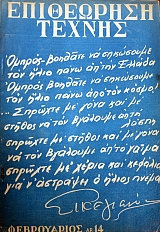 ΕΠΙΘΕΩΡΗΣΗ
ΤΕΧΝΗΣ
Ομπρός· βοηθᾶτε νὰ σηκώσουμε
τὸν ἥλιο πάνω ἀπ' τὴν Ἑλλάδα
Ὀμπρὸς βοηθᾶτε νὰ σηκώσουμε
τὸν ἥλιο πάνω ἀπὸ τὸν κόσμο,
Σπρῶχτε μὲ γόνα καὶ μὲ
στῆθος νὰ τὸν βγάλουμε ἀπ' τὴ
λάσπη
σπρῶχτε μὲ στῆθος καὶ μὲ γόνα
νὰ τὸν βγάλουμε ἀπ' τὸ γαῖμα
σπρῶχτε μὲ χέρια καὶ κεφάλια
γιὰ ν' ἀστράψει ὁ ἥλιος πνεῦμα
ΦΕΒΡΟΥΑΡΙΟΣ ΔΡ. 14